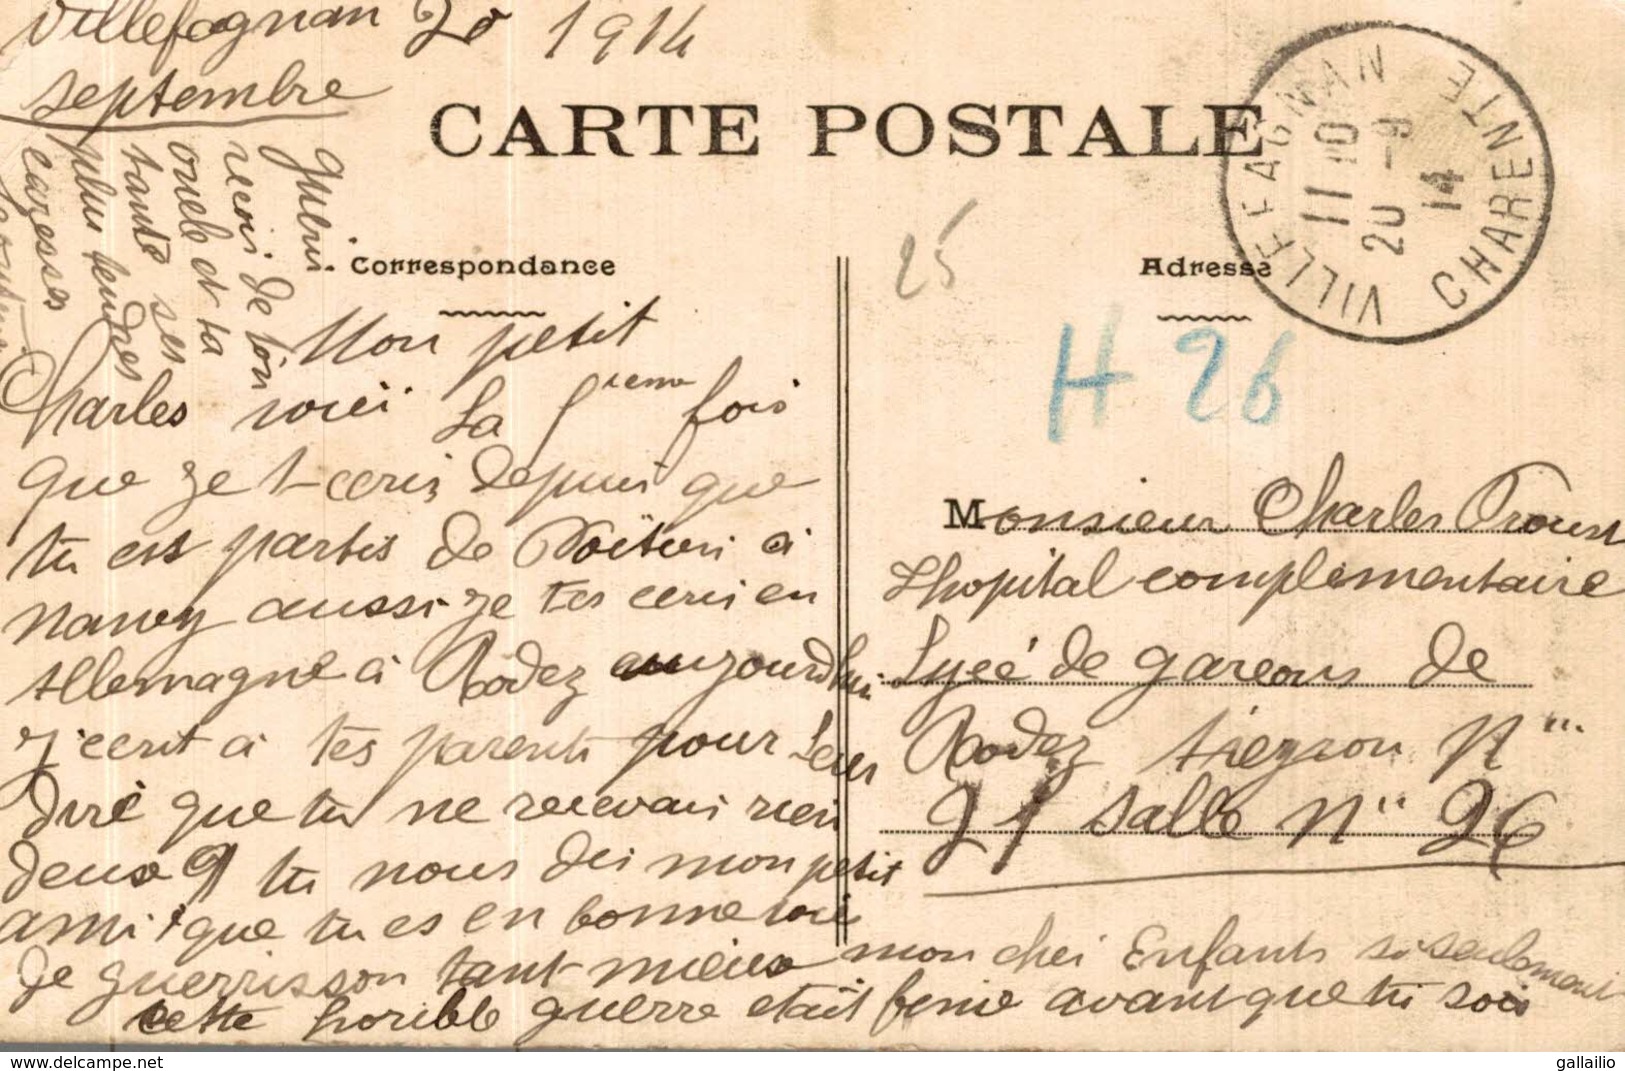 Villefagnan 20 1914
septembre
CARTE POSTALE
VILLEFAGNAN CHARENTE
11 10
20 - 9
14
25
Correspondance
Adresse
H 26
Mon petit
Charles voici La 5ieme fois
que je t-ecris depuis que
tu est partis de Poitieri a
nancy aussi je tes ecris en
Allemagne a Rodez aujourdhui
j'ecrit a tes parents pour Leur
dire que tu ne recevais rien
deux tu nous dis mon petit
ami que tu es en bonne voie
de guerrisson tant mieux mon cher Enfants si seulement
cette horible guerre etait fenie avant que tu sois
recois de ton
oncle et ta
tante ses
plus tendres
caresses
Monsieur Charles Proust
Lhopital complementaire
Lycée de garcons de
Rodez Aveyron N...
21 salle N" 26
gallailo
www.delcampe.net